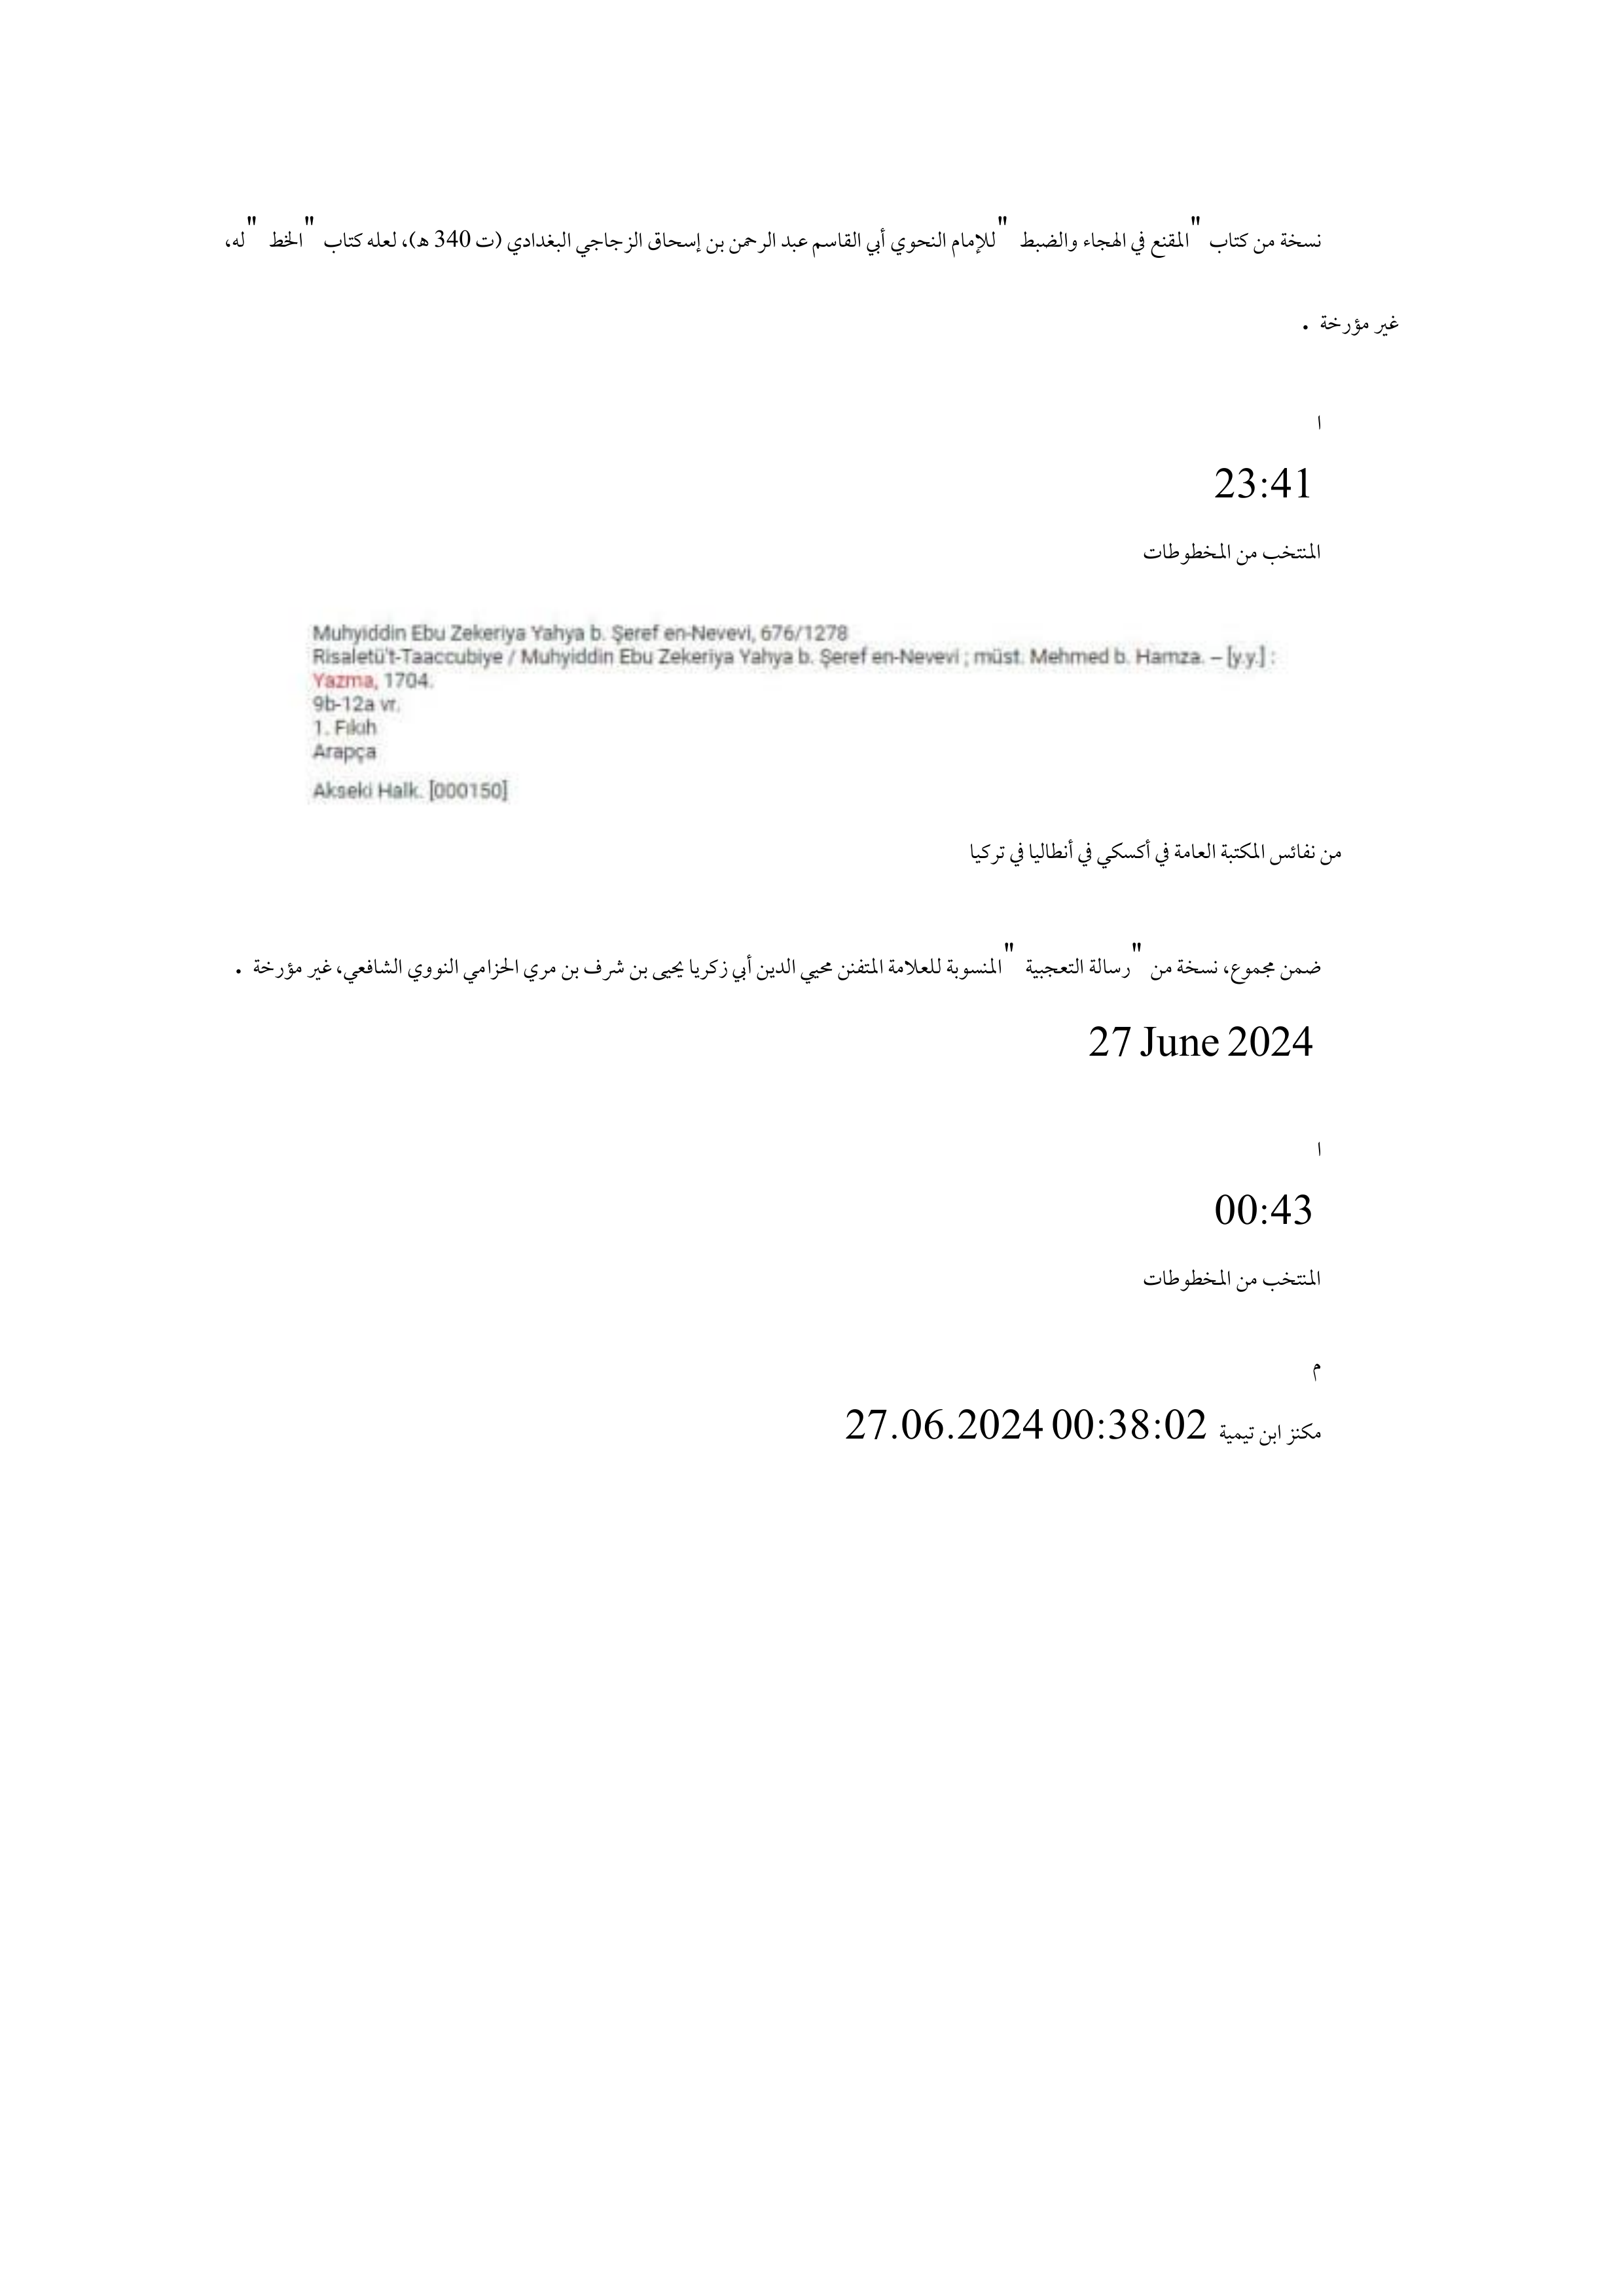 نسخة من كتاب "المقنع في الهجاء والضبط" للإمام النحوي أبي القاسم عبد الرحمن بن إسحاق الزجاجي البغدادي (ت 340 هـ)، لعله كتاب "الخط" له،
غير مؤرخة .
ا
23:41
المنتخب من المخطوطات
Muhyiddin Ebu Zekeriya Yahya b. Şeref en-Nevevi, 676/1278
Risaletü't-Taaccubiye / Muhyiddin Ebu Zekeriya Yahya b. Şeref en-Nevevi ; müst. Mehmed b. Hamza. – [y.y.] :
Yazma, 1704.
9b-12a vr.
1. Fıkıh
Arapça
Akseki Halk. [000150]
من نفائس المكتبة العامة في أكسكي في أنطاليا في تركيا
ضمن مجموع، نسخة من "رسالة التعجبية" المنسوبة للعلامة المتفنن محيي الدين أبي زكريا يحيى بن شرف بن مري الحزامي النووي الشافعي، غير مؤرخة .
27 June 2024
ا
00:43
المنتخب من المخطوطات
م
مكنز ابن تيمية 27.06.2024 00:38:02